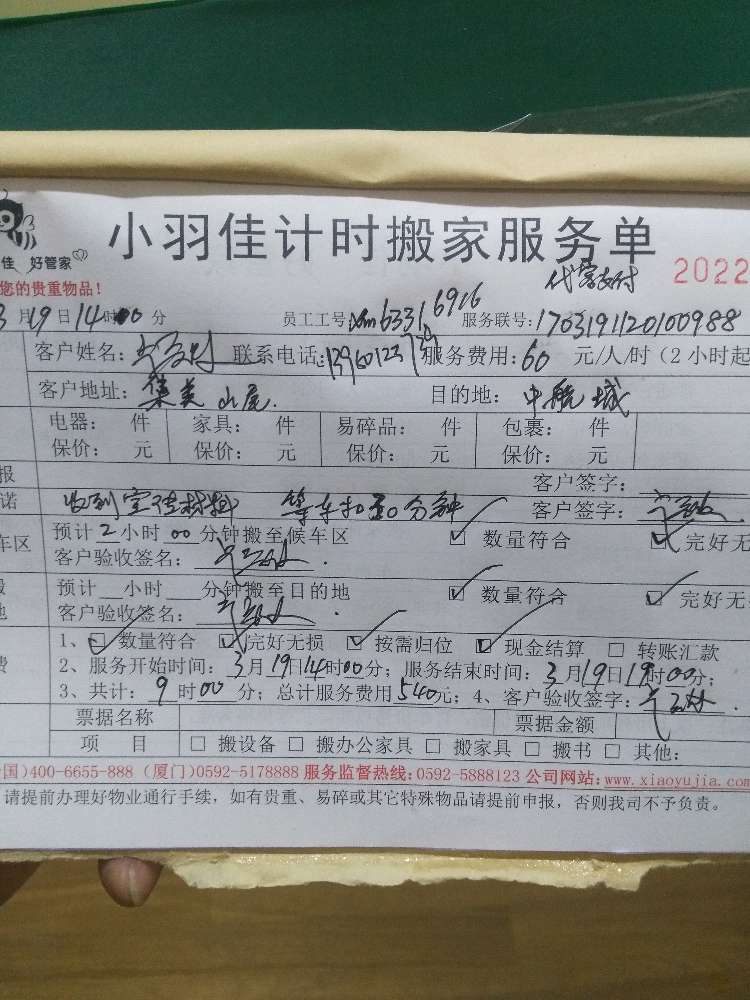 小羽佳计时搬家服务单
佳 好管家
您的贵重物品!
代客支付
2022
3月19日14时00分 员工工号: 6331 6916 服务联号:1703191120100988
客户姓名: 联系电话:13960123739 服务费用:60 元/人/时(2小时起
客户地址:集美 山尾. 目的地:中航城
电器: 件 家具: 件 易碎品: 件 包裹: 件
保价: 元 保价: 元 保价: 元 保价: 元
报 客户签字:
诺 收到宣传材料 等车扣30分钟 客户签字:
车区 预计2小时00分钟搬至候车区 ☑ 数量符合 ☑ 完好无
客户验收签名:
预计__小时__分钟搬至目的地 ☑ 数量符合 ☑ 完好无
地 客户验收签名:
1、☑ 数量符合 ☑ 完好无损 ☑ 按需归位 ☑ 现金结算 □ 转账汇款
费 2、服务开始时间:3月19日14时00分; 服务结束时间:3月19日19时00分;
3、共计:9时00分; 总计服务费用540元; 4、客户验收签字:
票据名称 票据金额
项 目 □ 搬设备 □ 搬办公家具 □ 搬家具 □ 搬书 □ 其他:
国)400-6655-888 (厦门)0592-5178888 服务监督热线:0592-5888123 公司网站:www.xiaoyujia.com
请提前办理好物业通行手续,如有贵重、易碎或其它特殊物品请提前申报,否则我司不予负责。